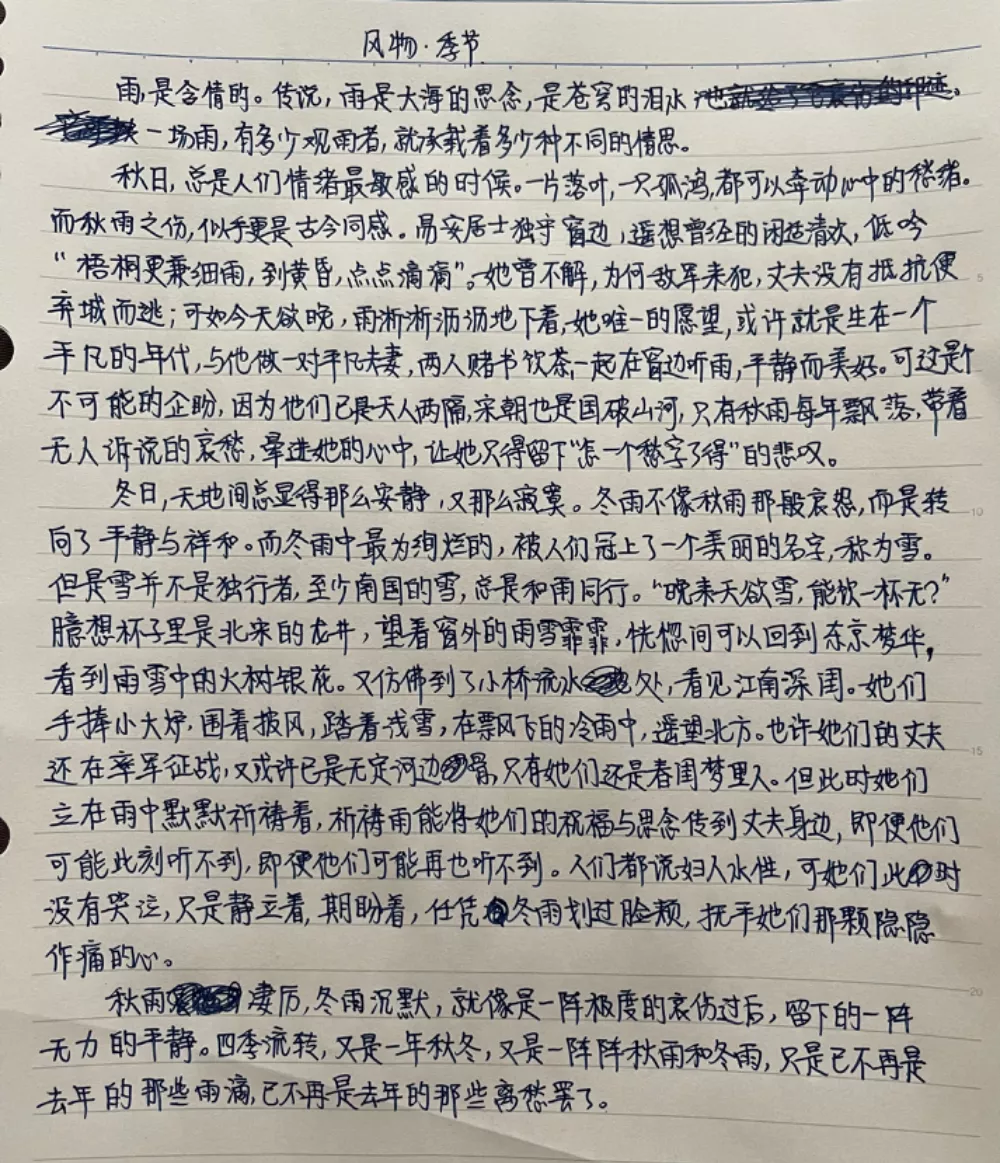 风物·季节
雨,是含情的。传说,雨是大海的思念,是苍穹的泪水。
一场雨,有多少观雨者,就承载着多少种不同的情思。
秋日,总是人们情绪最敏感的时候。一片落叶,一只孤鸿,都可以牵动心中的愁绪。
而秋雨之伤,似乎更是古今同感。易安居士独守窗边,遥想曾经的闲适清欢,低吟
“梧桐更兼细雨,到黄昏,点点滴滴”。她曾不解,为何敌军来犯,丈夫没有抵抗便
弃城而逃;可如今天欲晚,雨淅淅沥沥地下着,她唯一的愿望,或许就是生在一个
平凡的年代,与他做一对平凡夫妻,两人赌书饮茶,一起在窗边听雨,平静而美好。可这是个
不可能的企盼,因为他们已是天人两隔,宋朝也是国破山河,只有秋雨每年飘落,带着
无人诉说的哀愁,牵进她的心中,让她只得留下“怎一个愁字了得”的悲叹。
冬日,天地间总显得那么安静,又那么寂寞。冬雨不像秋雨那般哀怨,而是转
向了平静与祥和。而冬雨中最为绚烂的,被人们冠上了一个美丽的名字,称为雪。
但是雪并不是独行者,至少南国的雪,总是和雨同行。“晚来天欲雪,能饮一杯无?”
臆想杯子里是北宋的龙井,望着窗外的雨雪霏霏,恍惚间可以回到东京梦华,
看到雨雪中的火树银花。又仿佛到了小桥流水处,看见江南深闺。她们
手捧小火炉,围着披风,踏着浅雪,在飘飞的冷雨中,遥望北方。也许她们的丈夫
还在率军征战,又或许已是无定河边骨,只有她们还是春闺梦里人。但此时她们
立在雨中默默祈祷着,祈祷雨能将她们的祝福与思念传到丈夫身边,即便他们
可能此刻听不到,即便他们可能再也听不到。人们都说妇人水性,可她们此时
没有哭泣,只是静立着,期盼着,任凭冬雨划过脸颊,抚平她们那颗隐隐
作痛的心。
秋雨凄厉,冬雨沉默,就像是一阵极度的哀伤过后,留下的一阵
无力的平静。四季流转,又是一年秋冬,又是一阵阵秋雨和冬雨,只是已不再是
去年的那些雨滴,已不再是去年的那些离愁罢了。